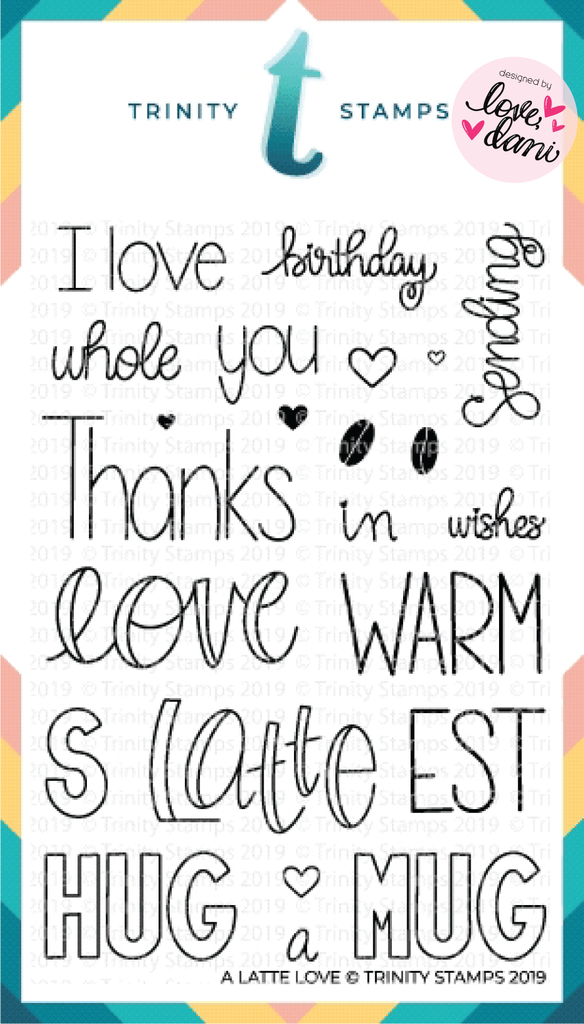 TRINITY t STAMPS
designed by
love,
dani
I love birthday
sending
whole you
Thanks in wishes
love WARM
S Latte EST
HUG a MUG
A LATTE LOVE © TRINITY STAMPS 2019
© Trinity Stamps 2019